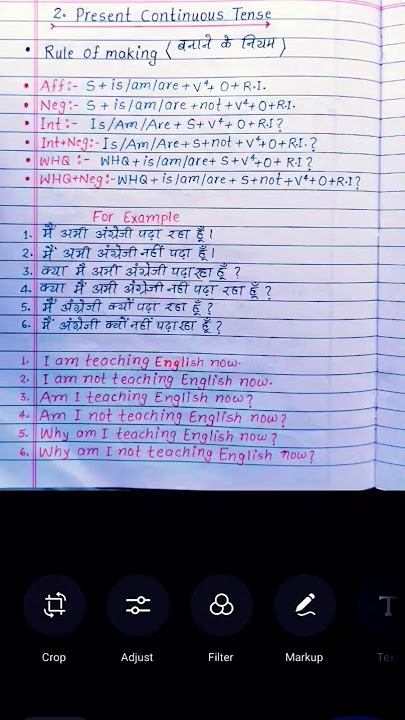 2. Present Continuous Tense
• Rule of making ( बनाने के नियम )
• Aff:- S + is/am/are + V⁴ + O + R.I.
• Neg:- S + is/am/are + not + V⁴ + O + R.I.
• Int:- Is/Am/Are + S + V⁴ + O + R.I?
• Int+Neg:- Is/Am/Are + S + not + V⁴ + O + R.I.?
• WHQ :- WHQ + is/am/are + S + V⁴ + O + R.I?
• WHQ+Neg:- WHQ + is/am/are + S + not + V⁴ + O + R.I?
For Example
1. मैं अभी अंग्रेजी पढ़ा रहा हूँ।
2. मैं अभी अंग्रेजी नहीं पढ़ा रहा हूँ।
3. क्या मै अभी अंग्रेजी पढ़ा रहा हूँ ?
4. क्या मैं अभी अंग्रेजी नहीं पढ़ा रहा हूँ ?
5. मैं अंग्रेजी क्यों पढ़ा रहा हूँ ?
6. मैं अंग्रेजी क्यों नहीं पढ़ा रहा हूँ ?
1. I am teaching English now.
2. I am not teaching English now.
3. Am I teaching English now?
4. Am I not teaching English now?
5. Why am I teaching English now?
6. Why am I not teaching English now?
Crop Adjust Filter Markup